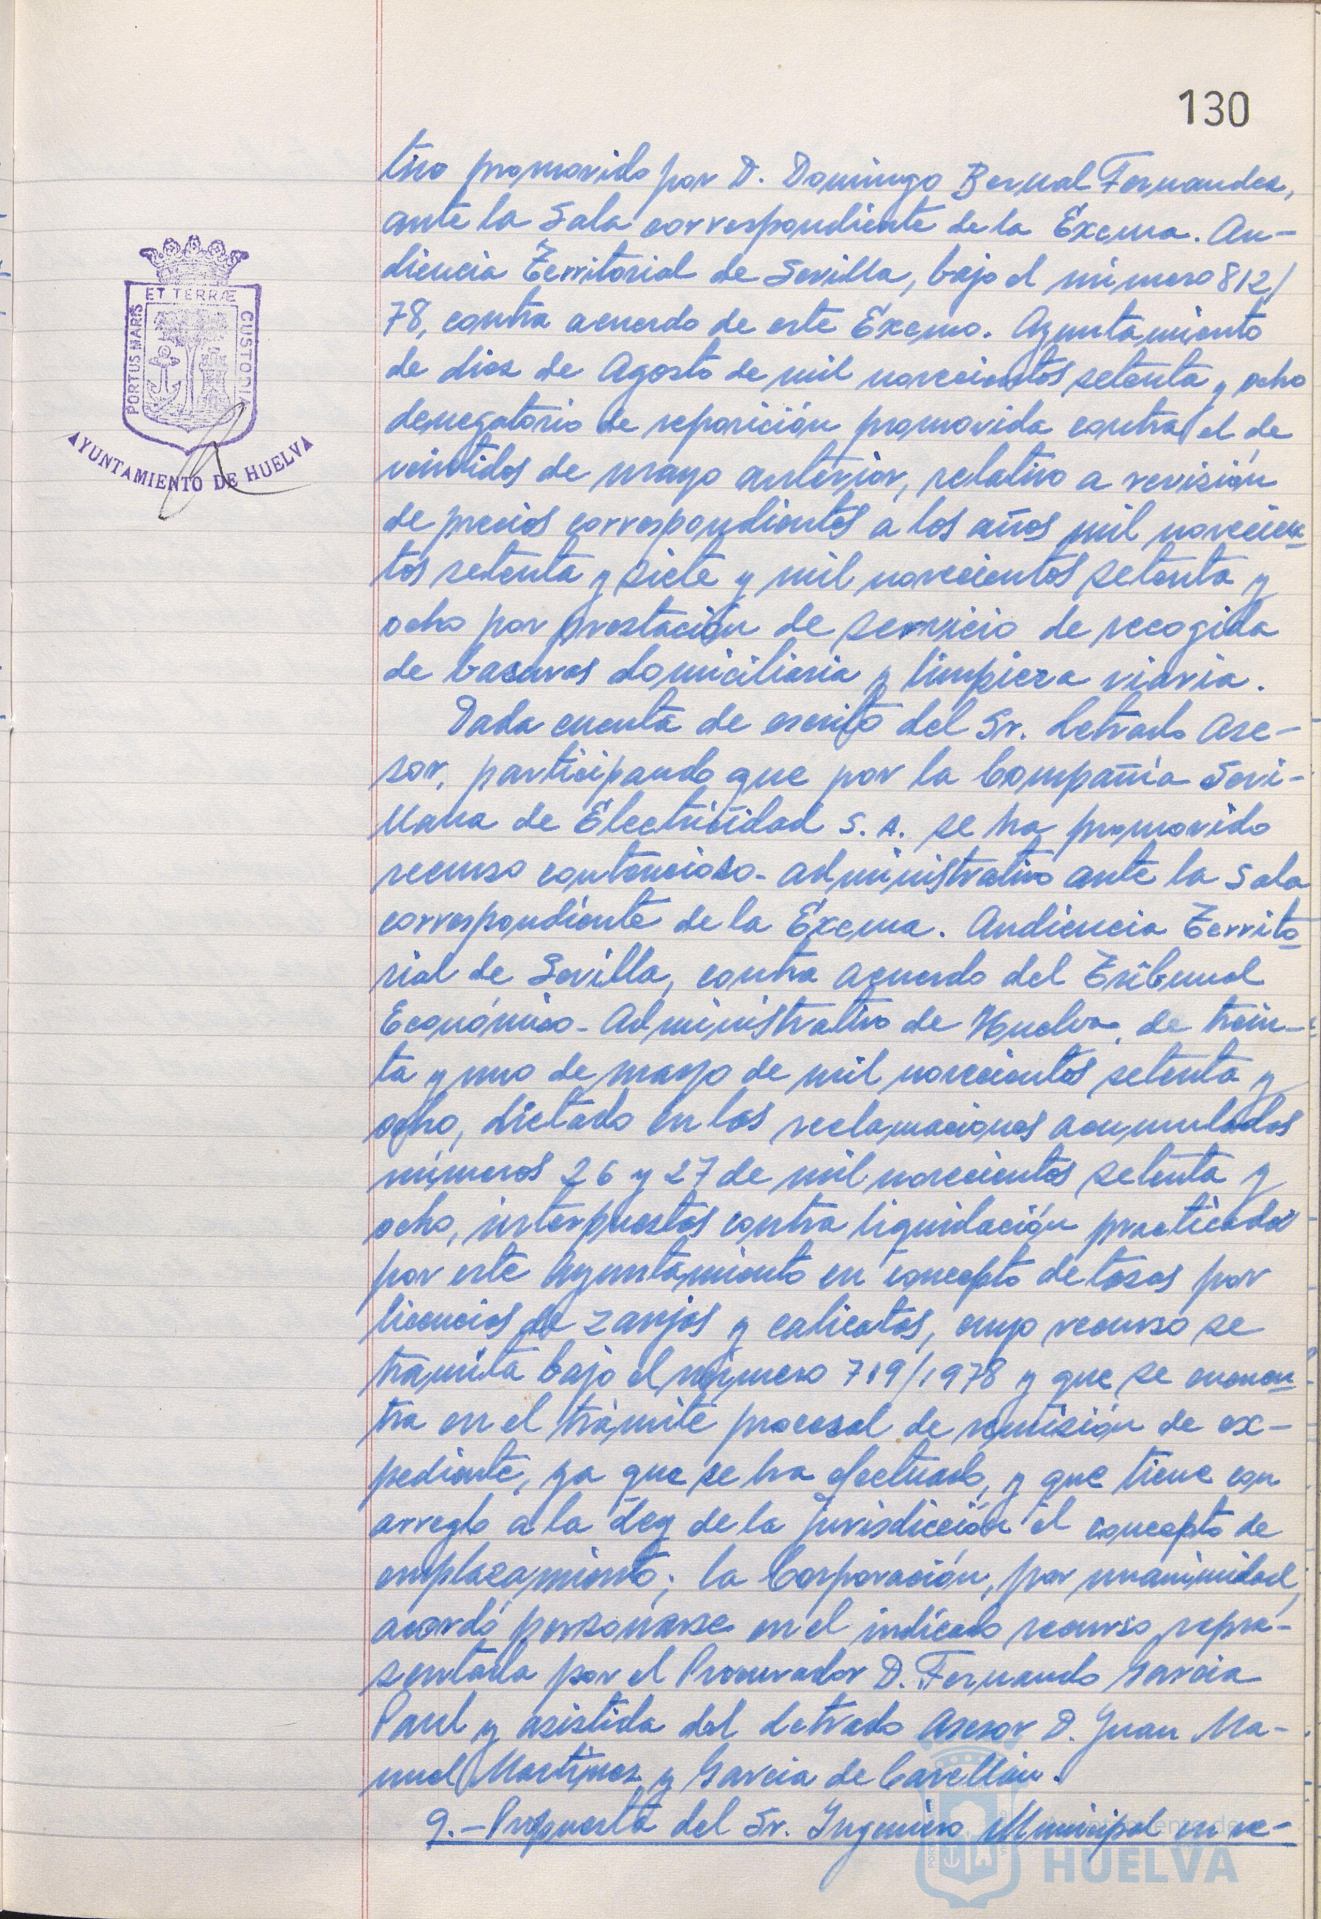 130
tivo promovido por D. Domingo Bernal Fernandez,
ante la Sala correspondiente de la Excma. Au-
diencia Territorial de Sevilla, bajo el número 812/
78, contra acuerdo de este Excmo. Ayuntamiento
de diez de Agosto de mil novecientos setenta y ocho
denegatorio de reposición promovida contra el de
veintidos de mayo anterior, relativo a revisión
de precios correspondientes a los años mil novecien-
tos setenta y siete y mil novecientos setenta y
ocho por prestación de servicio de recogida
de basuras domiciliaria y limpieza viaria.
Dada cuenta de escrito del Sr. Letrado Ase-
sor, participando que por la Compañía Sevi-
llana de Electricidad S. A. se ha promovido
recurso contencioso-administrativo ante la Sala
correspondiente de la Excma. Audiencia Territo-
rial de Sevilla, contra acuerdo del Tribunal
Económico-Administrativo de Huelva, de trein-
ta y uno de mayo de mil novecientos setenta y
ocho, dictado en las reclamaciones acumuladas
números 26 y 27 de mil novecientos setenta y
ocho, interpuestas contra liquidación practicada
por este Ayuntamiento en concepto de tasas por
licencias de zanjas y calicatas, cuyo recurso se
tramita bajo el número 719/1978 y que se encuen-
tra en el trámite procesal de remisión de ex-
pediente, ya que se ha efectuado, y que tiene con
arreglo a la Ley de la jurisdicción el concepto de
emplazamiento; la Corporación, por unanimidad,
acordó personarse en el indicado recurso repre-
sentada por el Procurador D. Fernando García
Paul y asistida del Letrado Asesor D. Juan Ma-
nuel Martínez y García de Casellán.
9.- Propuesta del Sr. Ingeniero Municipal en re-
PORTUS MARIS
ET TERRÆ
CUSTODIA
AYUNTAMIENTO DE HUELVA
Ayuntamiento de
HUELVA